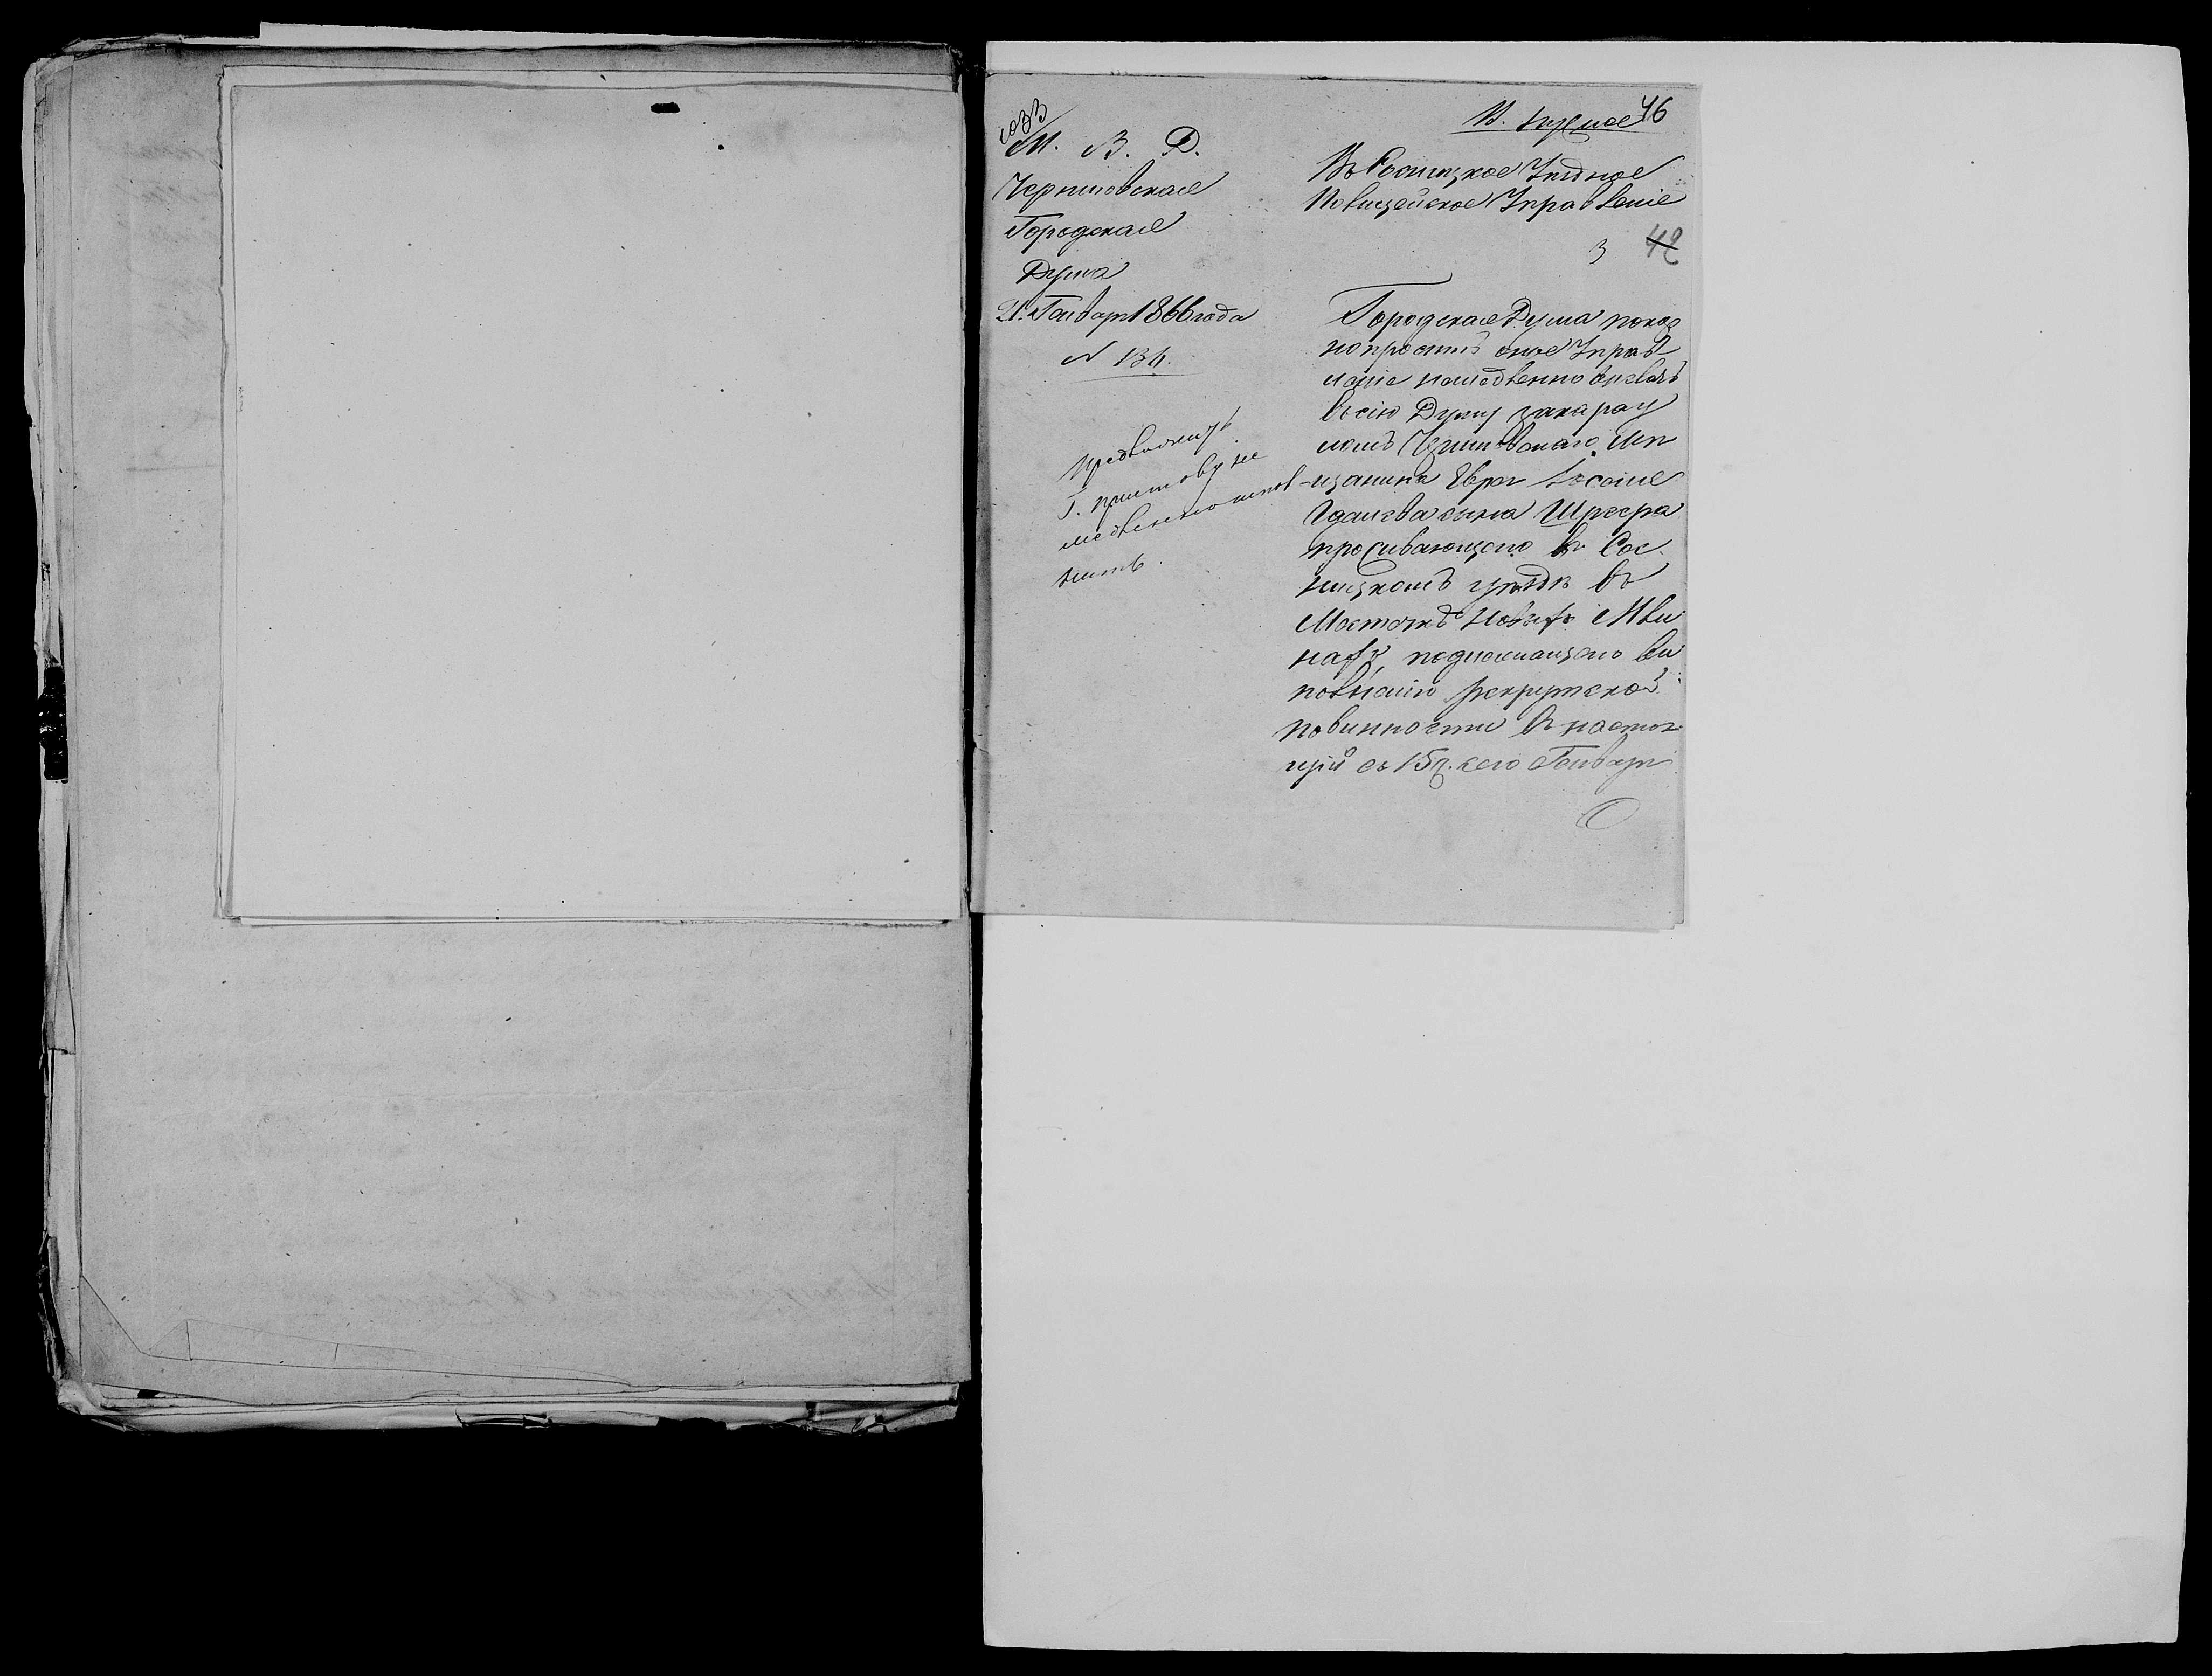 1033
М. В. Д.
Черниговская
Городская
Дума
21 Генваря 1866 года
N 134.
Предложить
Г. приставу не
медленно испол
нить.
46
В. нужное
Въ Сосницкое Уездное
Полицейское Управленіе
3 42
Городская Дума покор
но проситъ оное Управ-
леніе немедленно выслать
въ сію Думу за карау
ломъ Черниговскаго Мѣ
щанина Еврея
сына
проживающаго въ Сос
ницкомъ уѣздѣ въ
Местечкѣ Новыхъ Мли
нахъ, подлежащаго
рекрутской
повинности въ настоя
щій съ 15 ч. сего Генваря